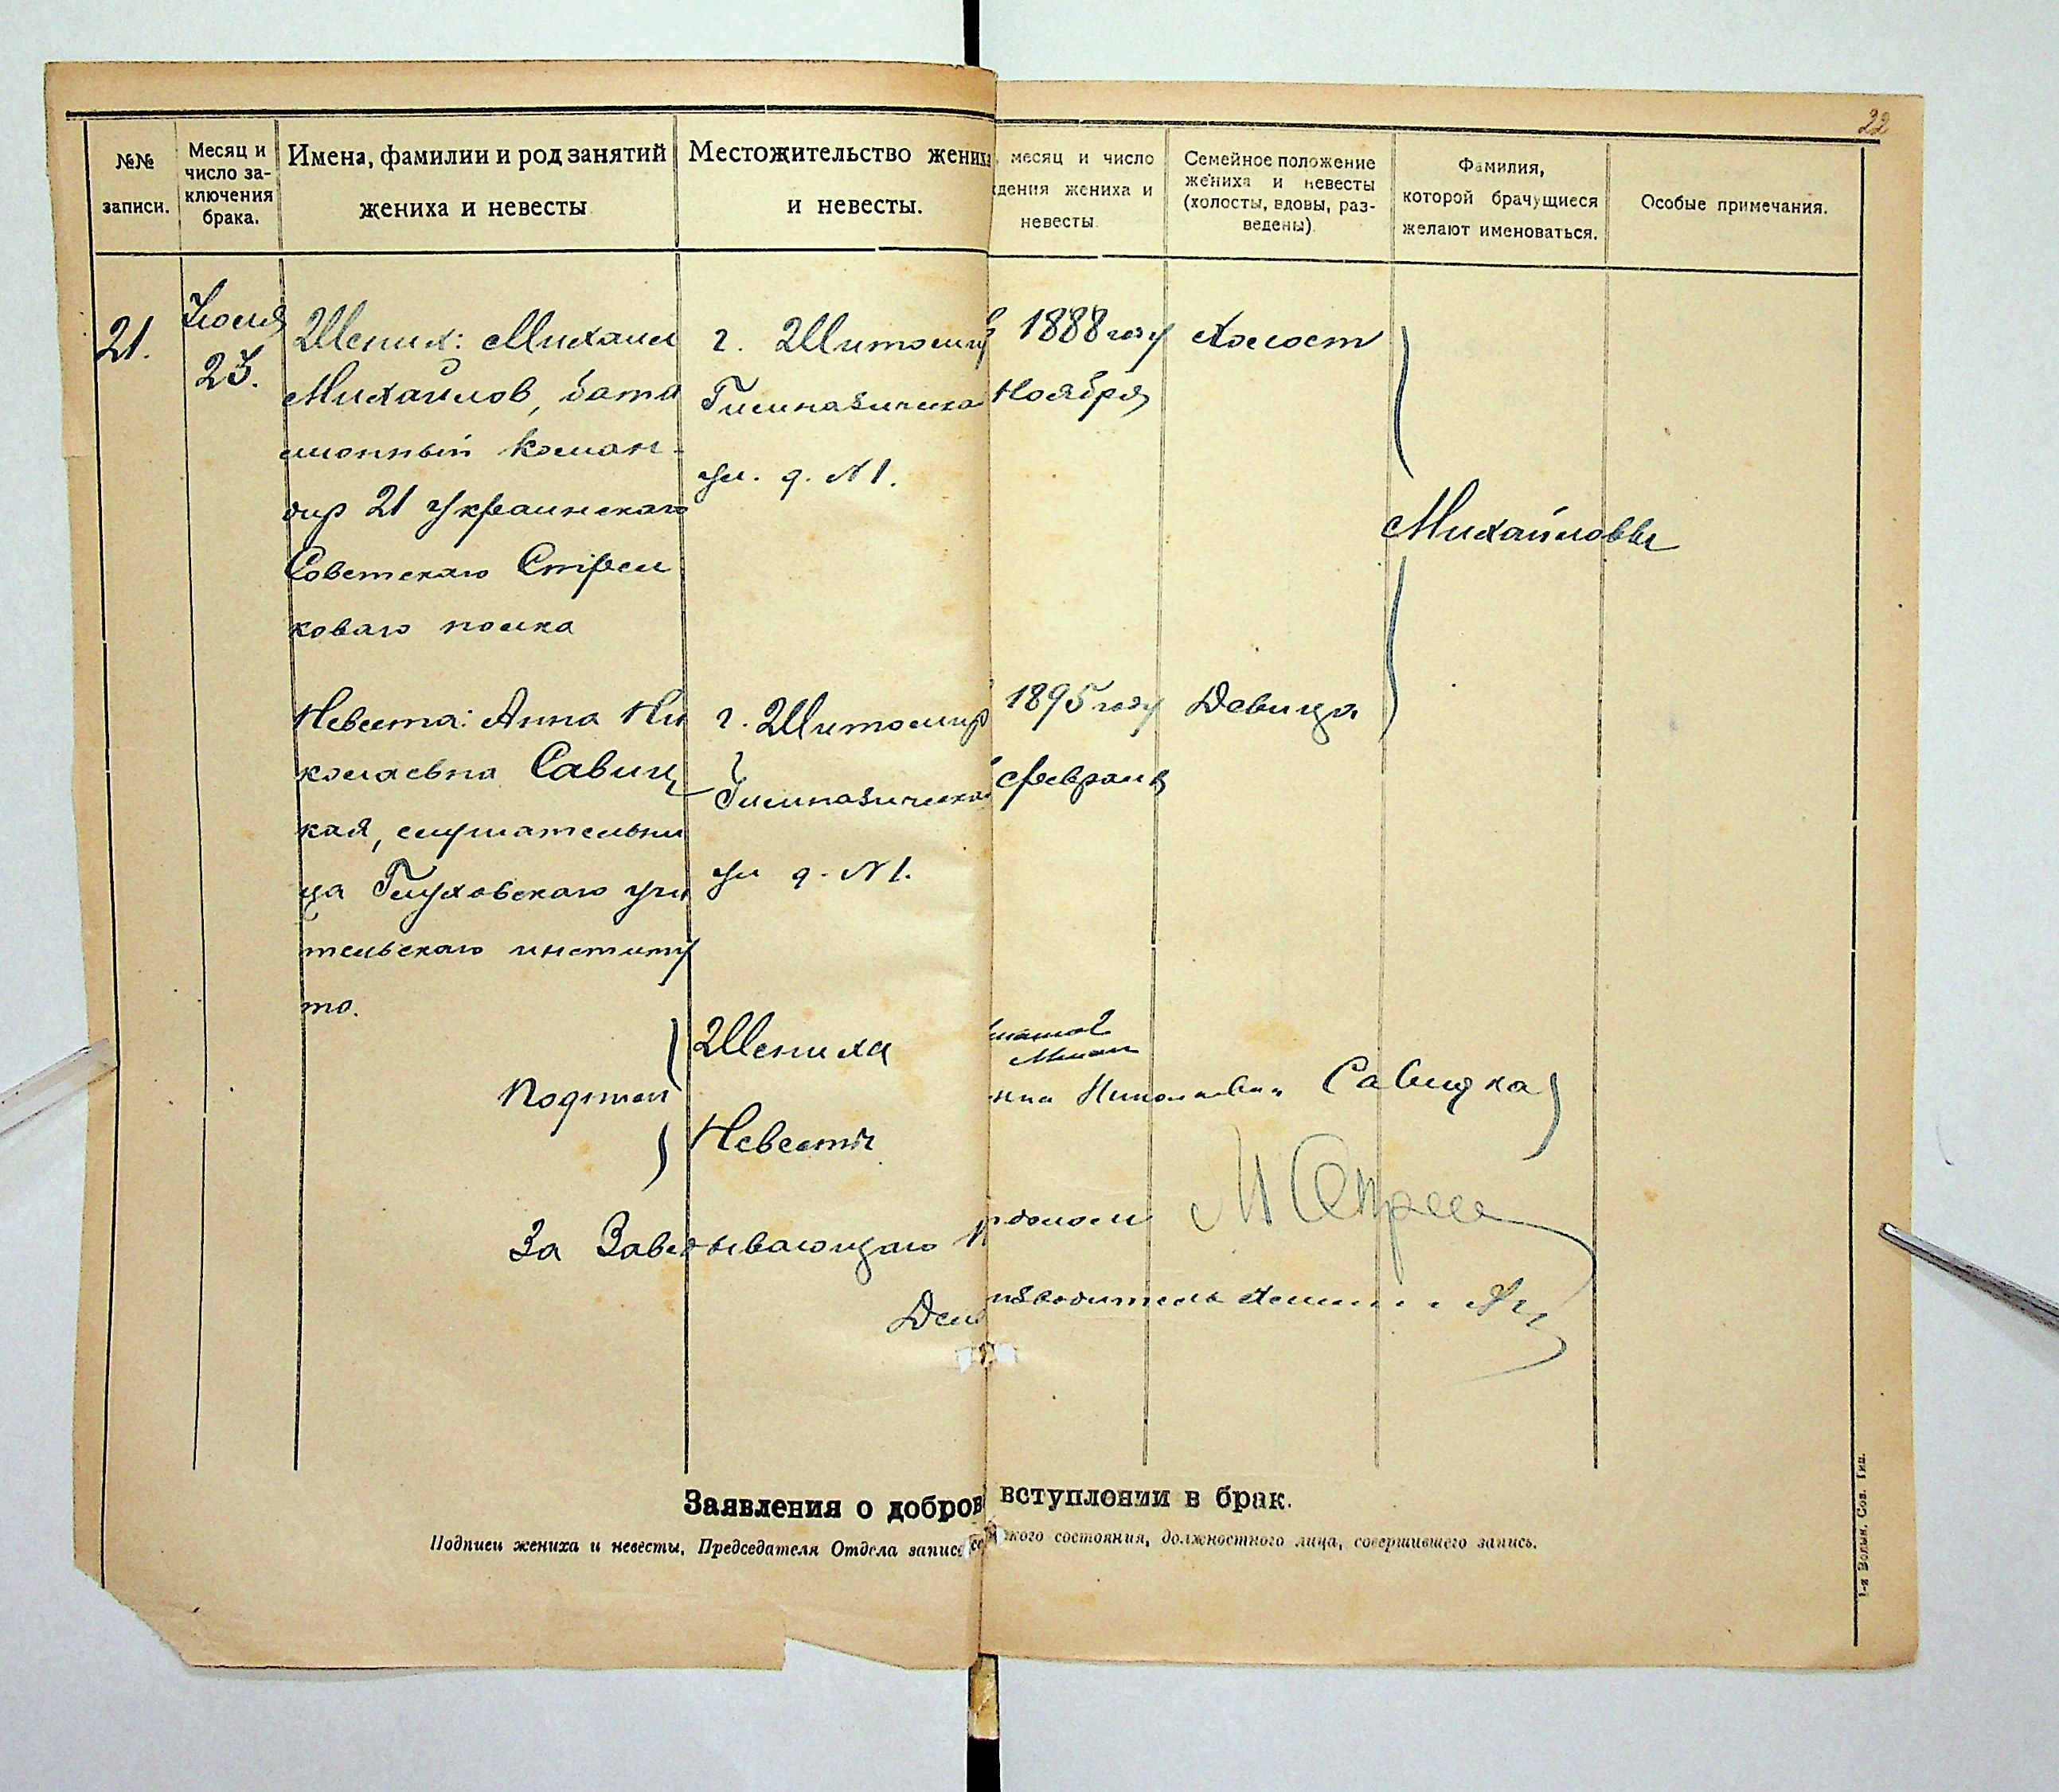 22
№№ записи.
Месяц и число заключения брака.
Имена, фамилии и род занятий
жениха и невесты
Местожительство жениха
и невесты.
месяц и число
дения жениха и
невесты.
Семейное положение
жениха и невесты
(холосты, вдовы, раз-
ведены).
Фамилия,
которой брачущиеся
желают именоваться.
Особые примечания.
21.
Июля
23.
Жених: Михаил
Михайлов, бата
лионный коман-
дир 21 Украинскаго
Советскаго Стрел
коваго полка
г. Житомир
Гимназическа
ул. д. №1.
1888 году
Ноября
Холост
Михайловы
Невеста: Анна Ни
колаевна Савиц
кая, слушательни
ца Глуховскаго учи
тельскаго институ
та.
г. Житомир
Гимназическа
ул д. №1.
1895 году
февраля
Девица
Подписи
Жениха
Невесты
Савицка
За Заведывающаго
Дело
изводитель
Заявления о добров вступлении в брак.
Подписи жениха и невесты, Председателя Отдела записе ского состояния, должностного лица, совершившего запись.
1-я Волын. Сов. Тип.